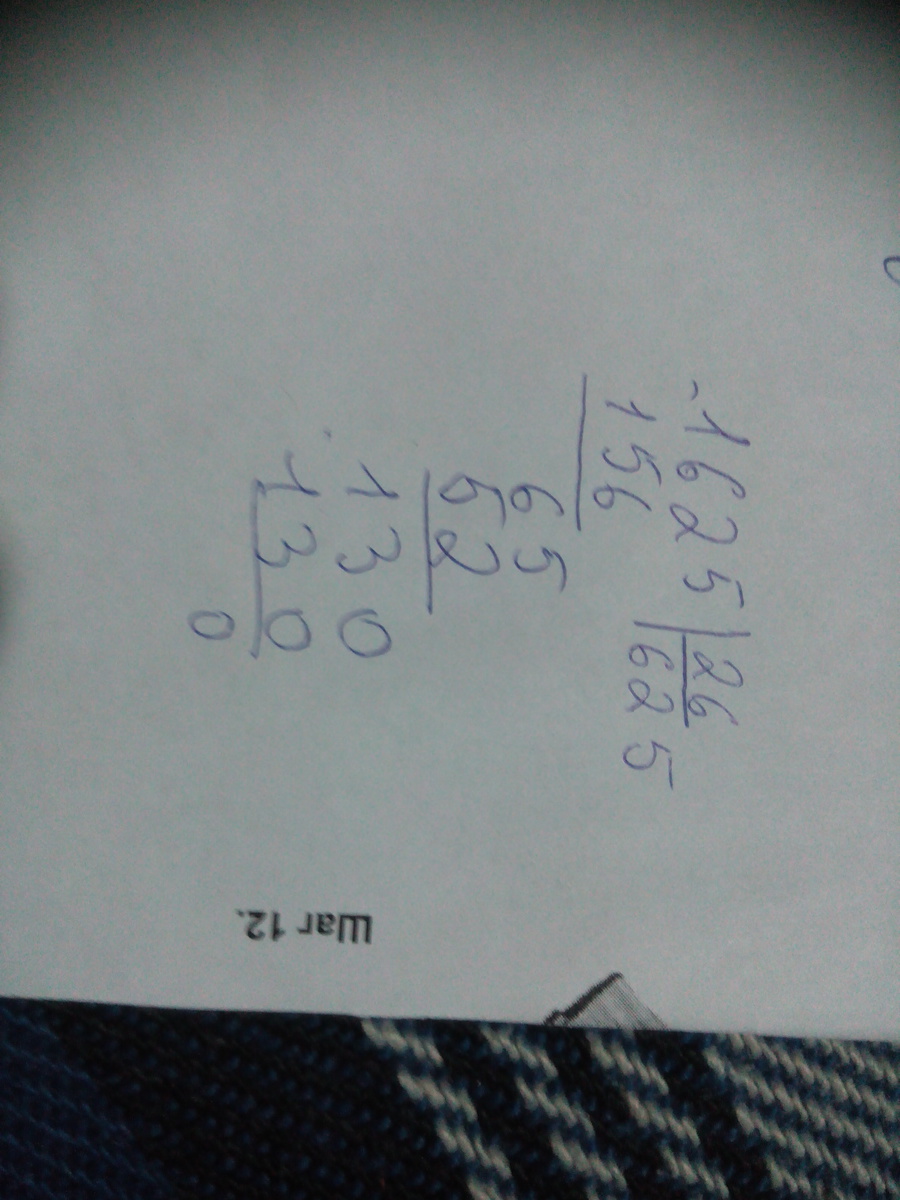 -1625|26
156 625
65
52
130
-130
0
Шаг 12.